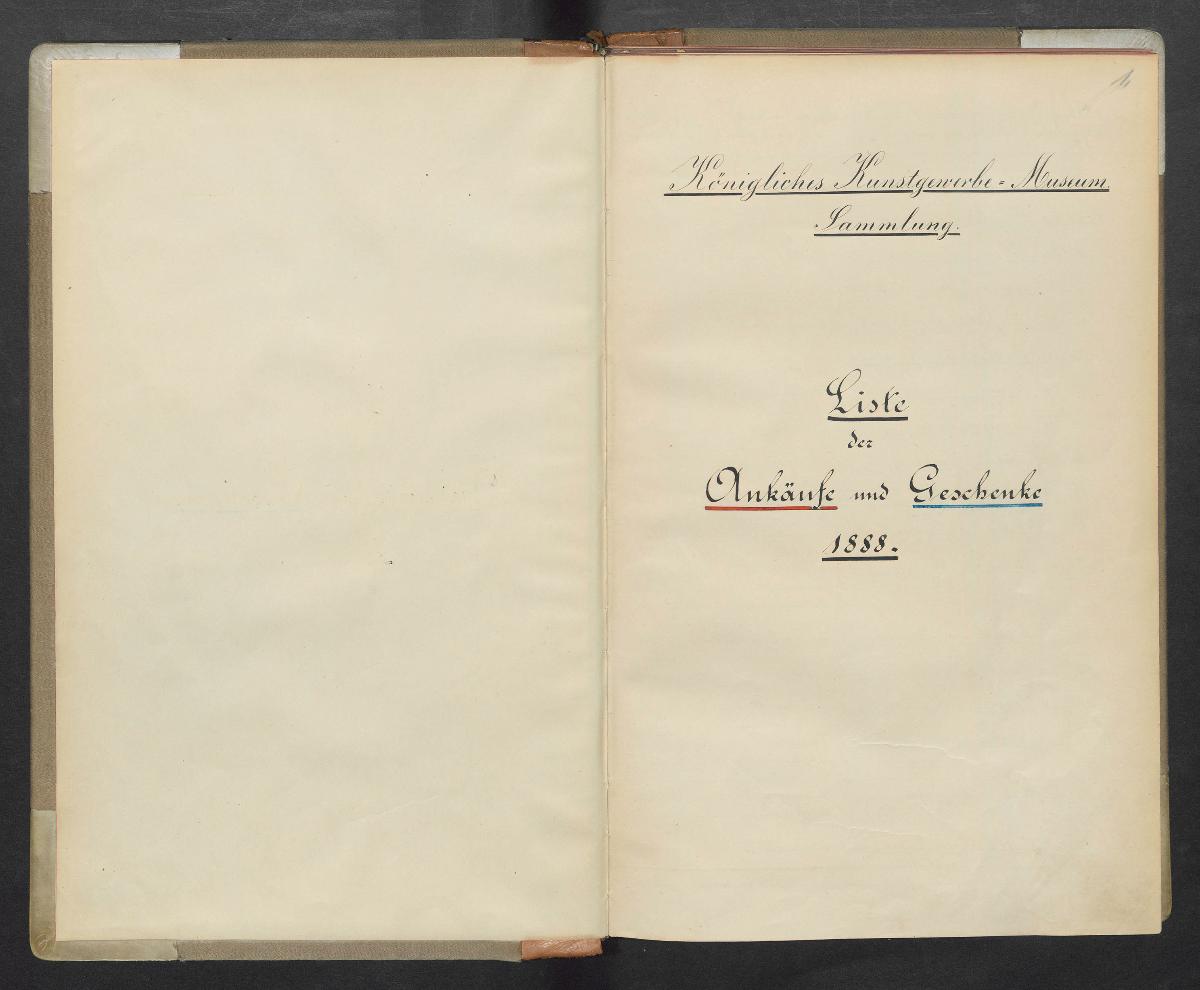 1
Königliches Kunstgewerbe=Museum.
Sammlung.
Liste
der
Ankäufe und Geschenke
1888.